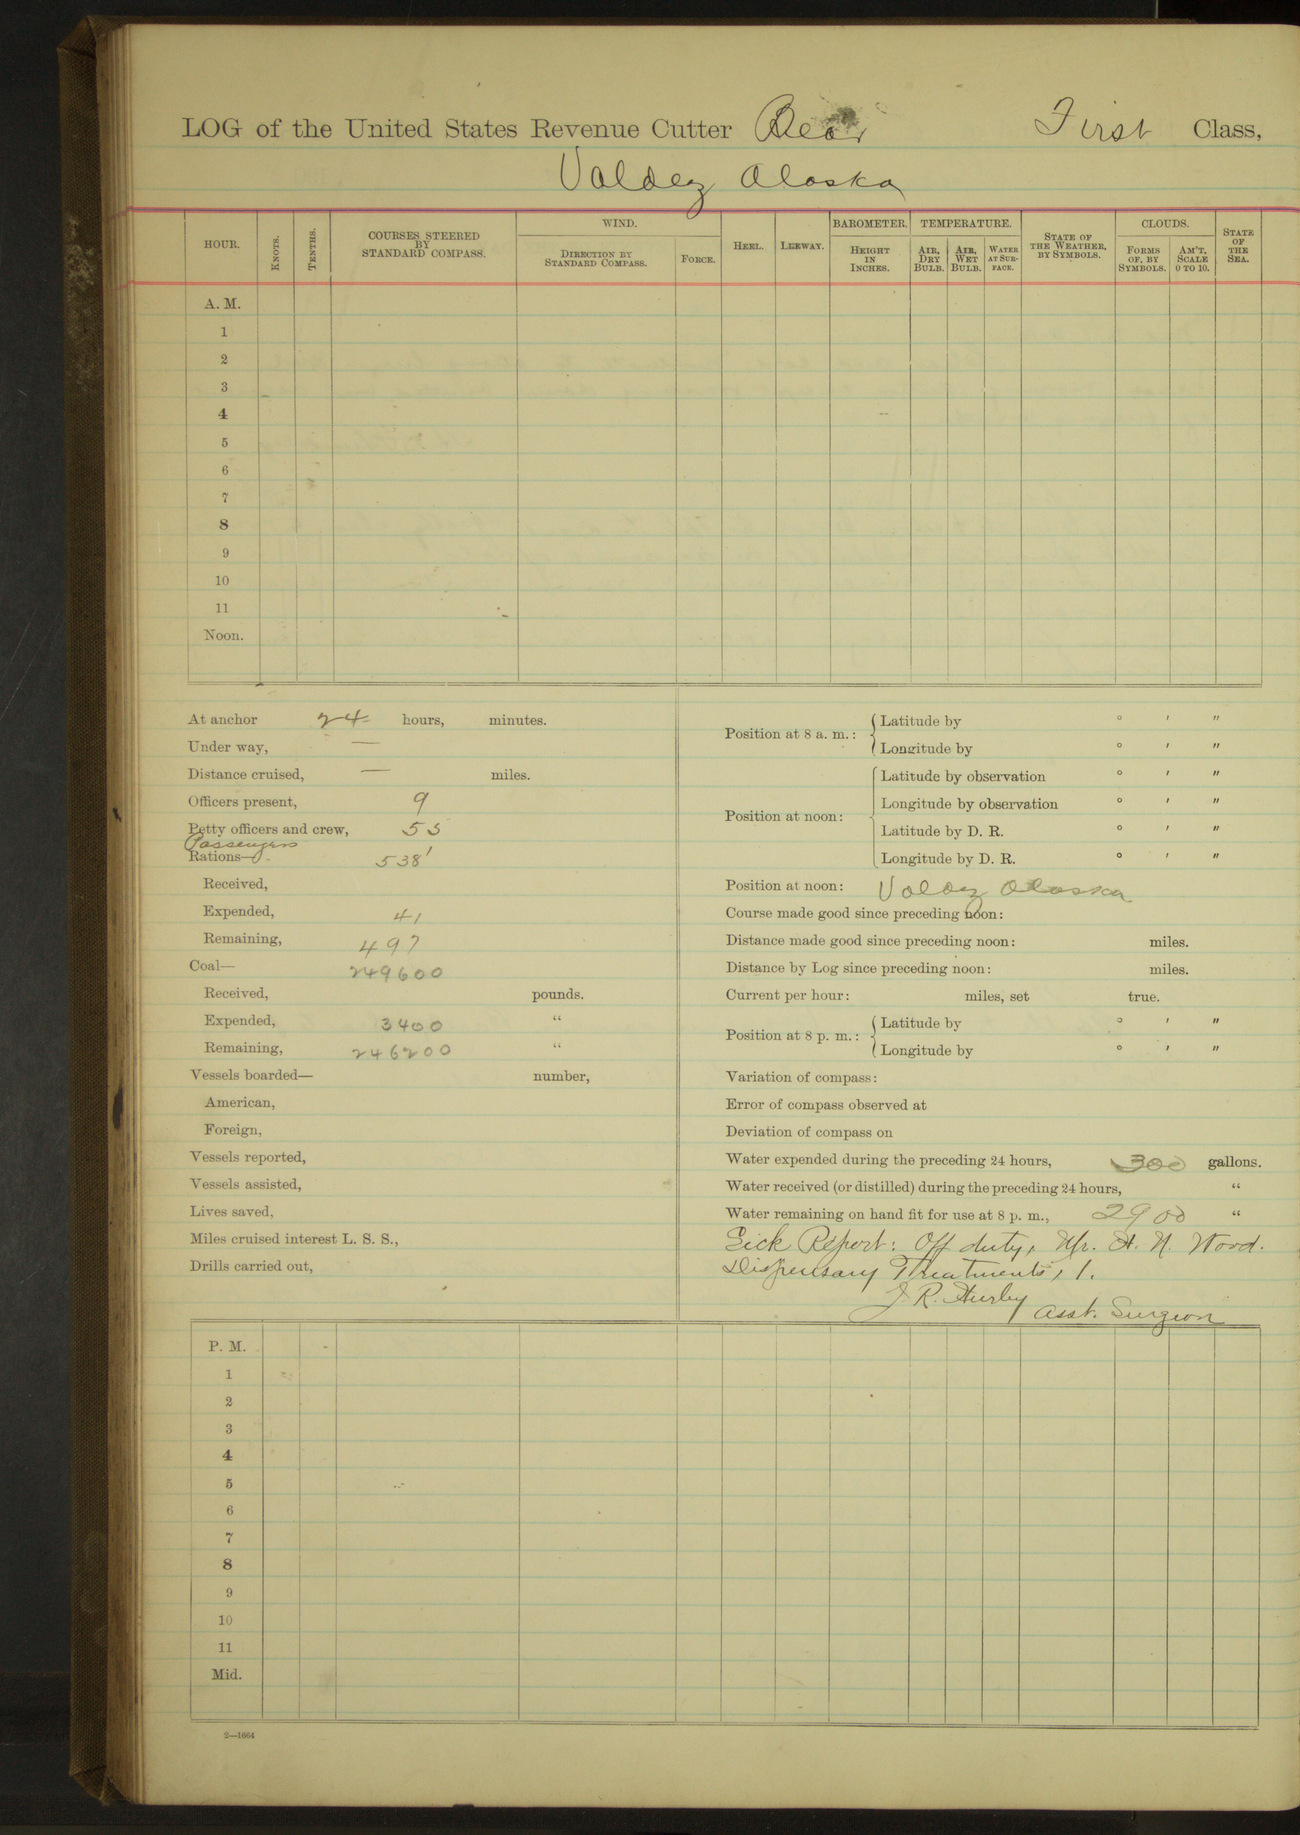 LOG of the United States Revenue Cutter Bear First Class,
Valdez Alaska
HOUR. KNOTS. TENTHS. COURSES STEERED BY STANDARD COMPASS. WIND. DIRECTION BY STANDARD COMPASS. FORCE. HEEL. LEEWAY. BAROMETER. HEIGHT IN INCHES. TEMPERATURE. AIR, DRY BULB. AIR, WET BULB. WATER AT SURFACE. STATE OF THE WEATHER, BY SYMBOLS. CLOUDS. FORMS OF, BY SYMBOLS. AM'T, SCALE 0 TO 10. STATE OF THE SEA.
A. M.
1
2
3
4
5
6
7
8
9
10
11
Noon.
At anchor 24 hours, minutes.
Under way, —
Distance cruised, — miles.
Officers present, 9
Petty officers and crew, 55
Passengers
Rations— 538
Received,
Expended, 41
Remaining, 497
Coal— 249600
Received, pounds.
Expended, 3400 “
Remaining, 246200 “
Vessels boarded— number,
American,
Foreign,
Vessels reported,
Vessels assisted,
Lives saved,
Miles cruised interest L. S. S.,
Drills carried out,
Position at 8 a. m.: Latitude by ° ′ ″
Longitude by ° ′ ″
Position at noon: Latitude by observation ° ′ ″
Longitude by observation ° ′ ″
Latitude by D. R. ° ′ ″
Longitude by D. R. ° ′ ″
Position at noon: Valdez Alaska
Course made good since preceding noon:
Distance made good since preceding noon: miles.
Distance by Log since preceding noon: miles.
Current per hour: miles, set true.
Position at 8 p. m.: Latitude by ° ′ ″
Longitude by ° ′ ″
Variation of compass:
Error of compass observed at
Deviation of compass on
Water expended during the preceding 24 hours, 300 gallons.
Water received (or distilled) during the preceding 24 hours, “
Water remaining on hand fit for use at 8 p. m., 2900 “
Sick Report: Off duty, Mr. H. N. Wood.
Dispensary Treatments, 1.
J. R. Hurley Asst. Surgeon
P. M.
1
2
3
4
5
6
7
8
9
10
11
Mid.
2—1664